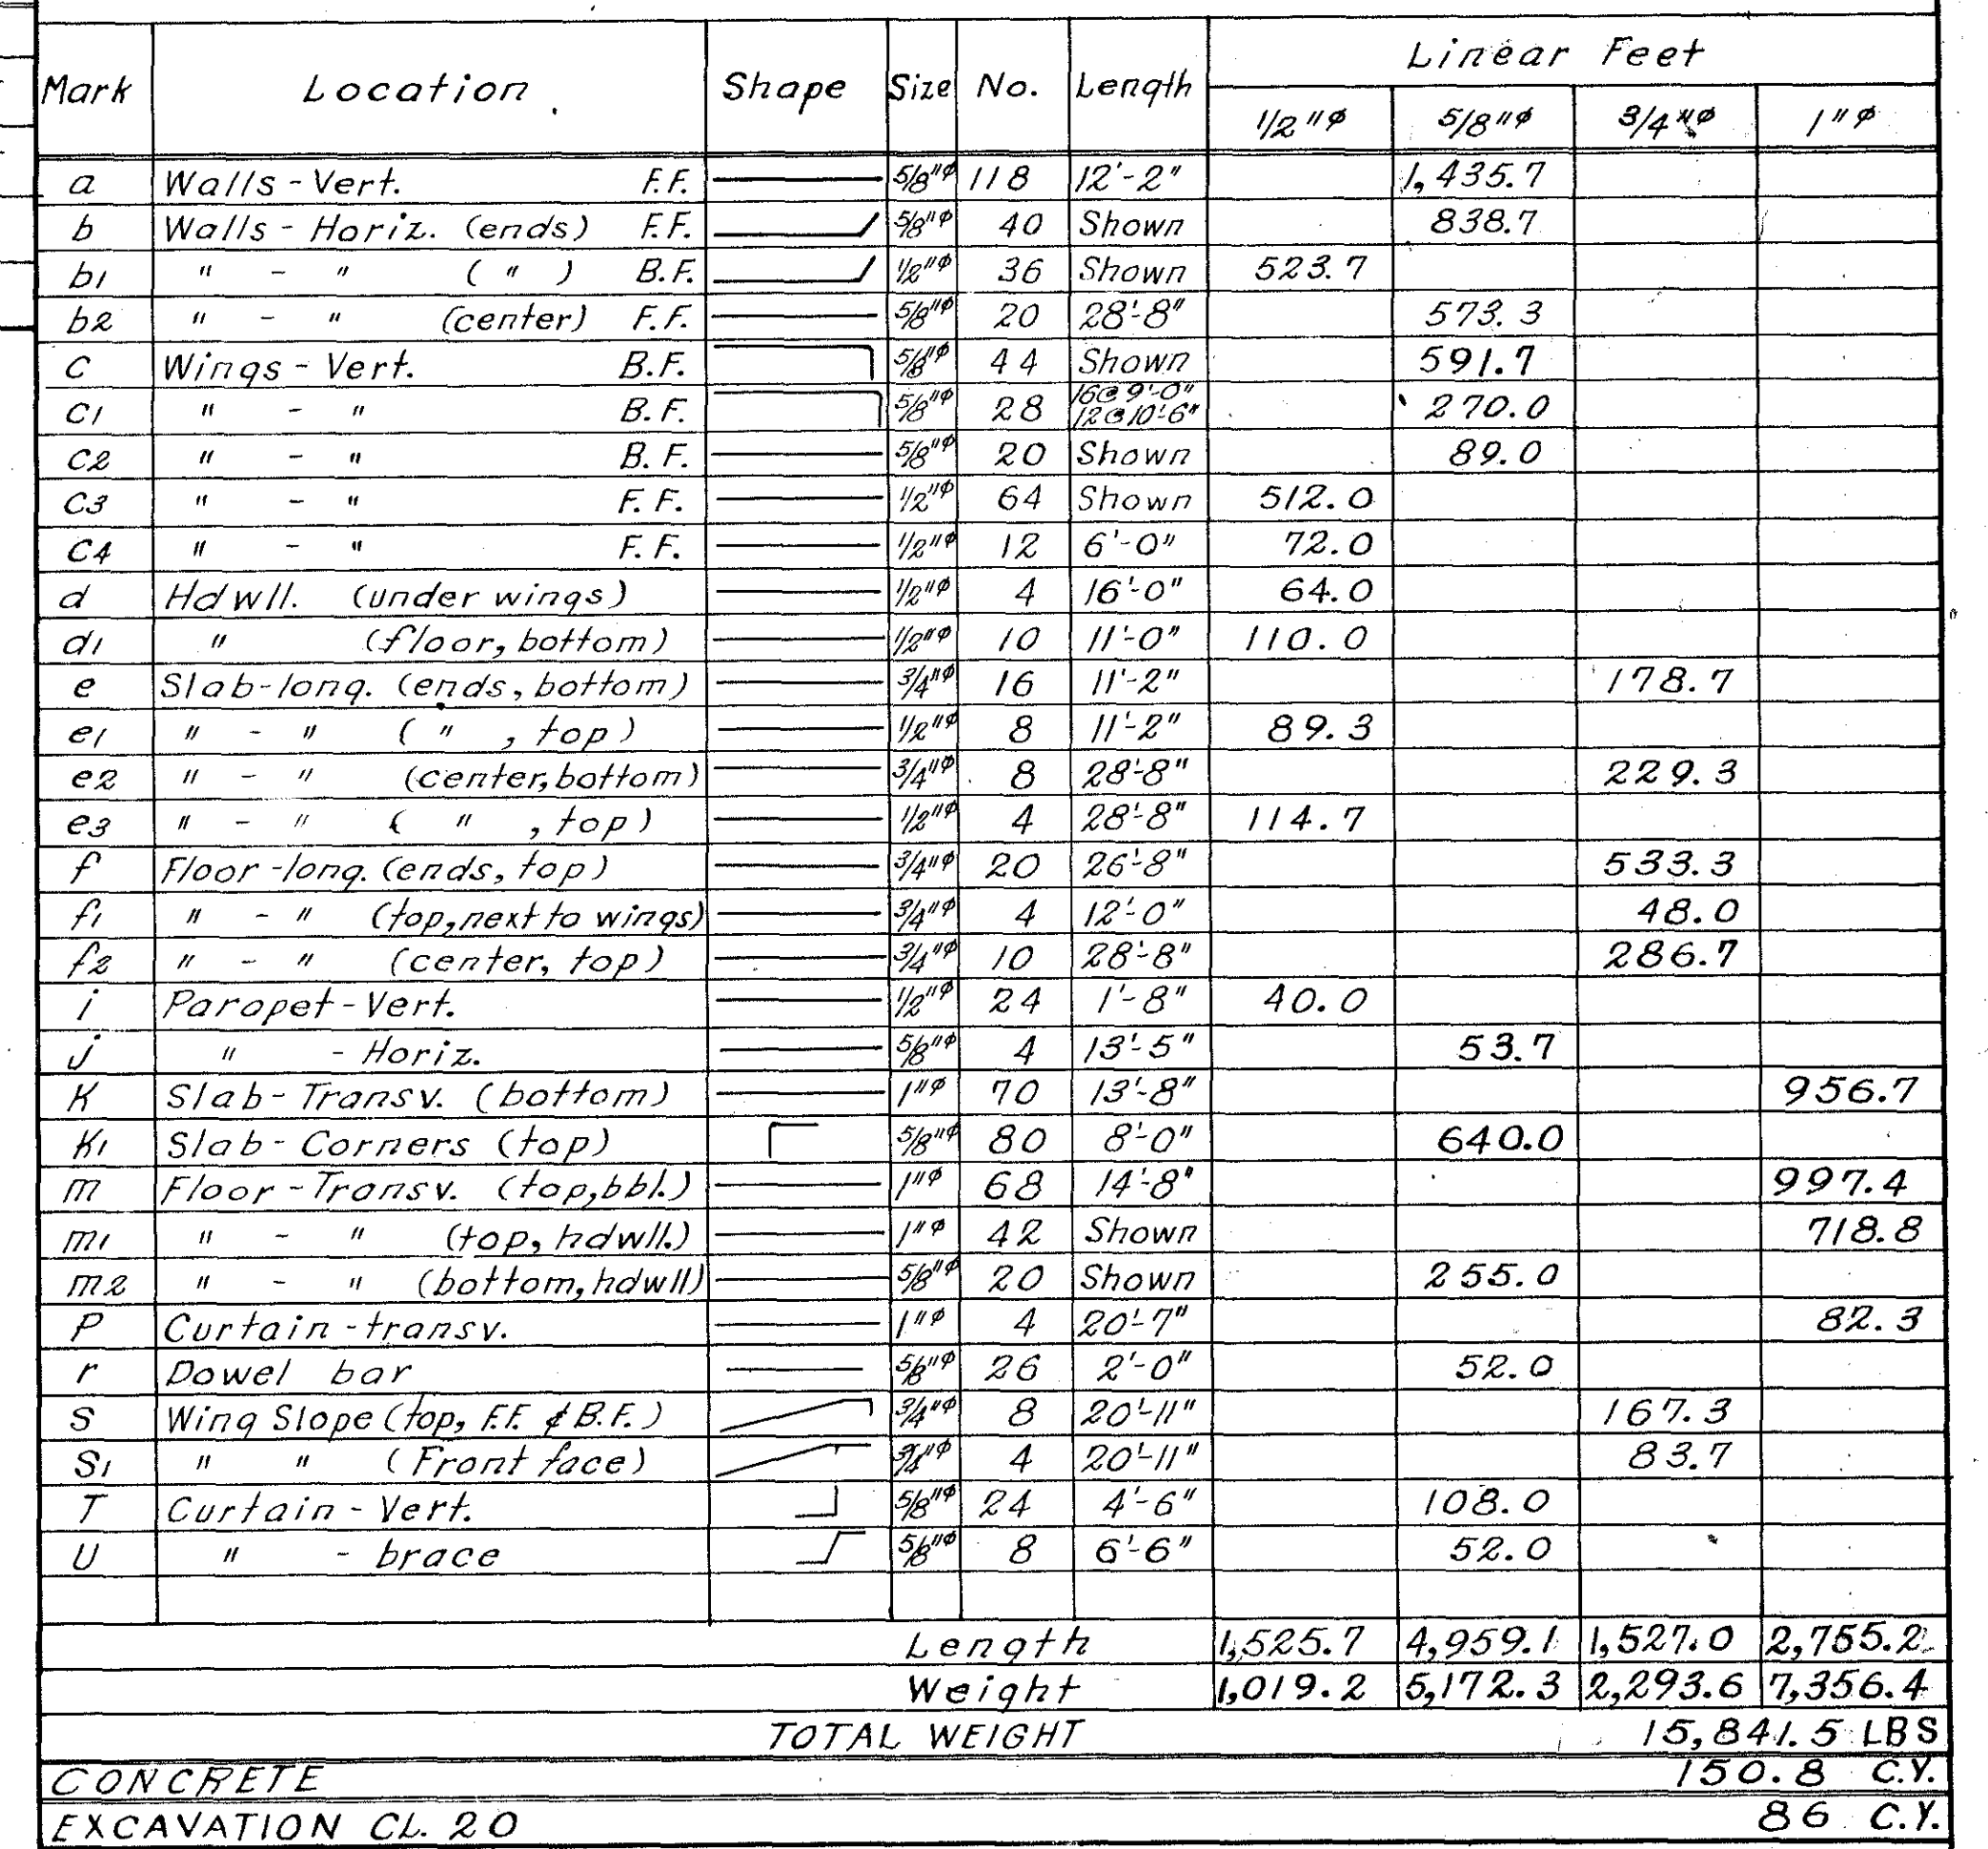 Mark Location Shape Size No. Length Linear Feet
1/2"φ 5/8"φ 3/4"φ 1"φ
a Walls-Vert. F.F. 5/8"φ 118 12'-2" 1,435.7
b Walls-Horiz. (ends) F.F. 5/8"φ 40 Shown 838.7
b1 " - " ( " ) B.F. 1/2"φ 36 Shown 523.7
b2 " - " (center) F.F. 5/8"φ 20 28'-8" 573.3
c Wings-Vert. B.F. 5/8"φ 44 Shown 591.7
c1 " - " B.F. 5/8"φ 28 16@9'-0" 12@10'-6" 270.0
c2 " - " B.F. 5/8"φ 20 Shown 89.0
c3 " - " F.F. 1/2"φ 64 Shown 512.0
c4 " - " F.F. 1/2"φ 12 6'-0" 72.0
d Hdwll. (under wings) 1/2"φ 4 16'-0" 64.0
d1 " (floor, bottom) 1/2"φ 10 11'-0" 110.0
e Slab-long. (ends, bottom) 3/4"φ 16 11'-2" 178.7
e1 " - " ( " , top) 1/2"φ 8 11'-2" 89.3
e2 " - " (center, bottom) 3/4"φ 8 28'-8" 229.3
e3 " - " ( " , top) 1/2"φ 4 28'-8" 114.7
f Floor-long. (ends, top) 3/4"φ 20 26'-8" 533.3
f1 " - " (top, next to wings) 3/4"φ 4 12'-0" 48.0
f2 " - " (center, top) 3/4"φ 10 28'-8" 286.7
i Parapet-Vert. 1/2"φ 24 1'-8" 40.0
j " - Horiz. 5/8"φ 4 13'-5" 53.7
K Slab-Transv. (bottom) 1"φ 70 13'-8" 956.7
K1 Slab-Corners (top) 5/8"φ 80 8'-0" 640.0
m Floor-Transv. (top, bbl.) 1"φ 68 14'-8" 997.4
m1 " - " (top, hdwll.) 1"φ 42 Shown 718.8
m2 " - " (bottom, hdwll) 5/8"φ 20 Shown 255.0
P Curtain-transv. 1"φ 4 20'-7" 82.3
r Dowel bar 5/8"φ 26 2'-0" 52.0
S Wing Slope (top, F.F. & B.F.) 3/4"φ 8 20'-11" 167.3
S1 " " (Front face) 3/4"φ 4 20'-11" 83.7
T Curtain-Vert. 5/8"φ 24 4'-6" 108.0
U " - brace 5/8"φ 8 6'-6" 52.0
Length 1,525.7 4,959.1 1,527.0 2,755.2
Weight 1,019.2 5,172.3 2,293.6 7,356.4
TOTAL WEIGHT 15,841.5 LBS
CONCRETE 150.8 C.Y.
EXCAVATION CL. 20 86 C.Y.